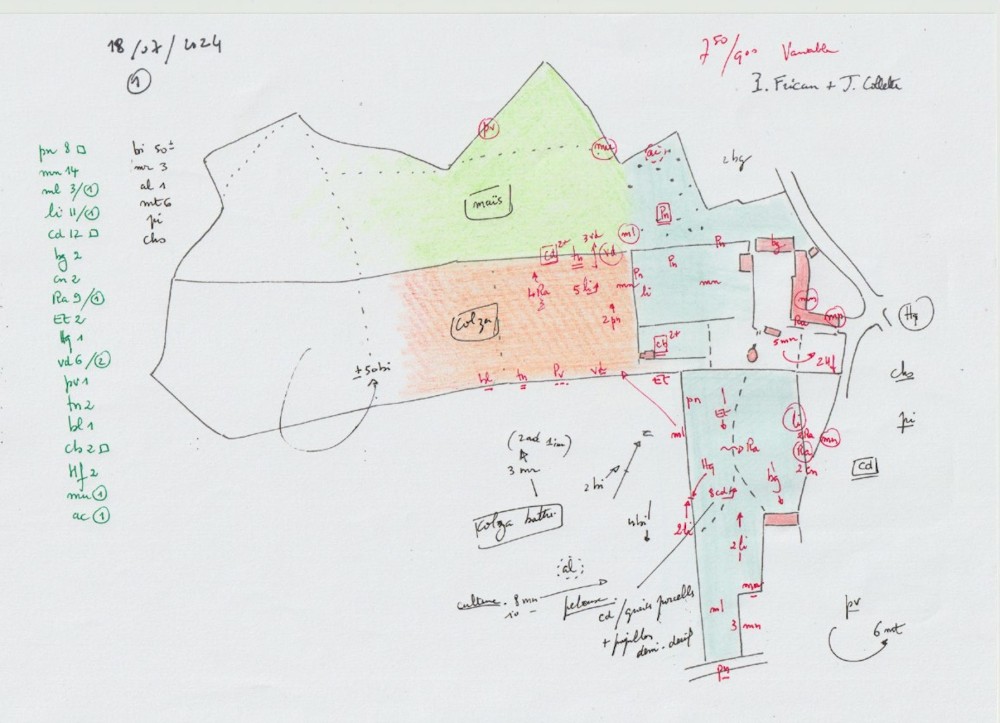 18/07/2024
①
7⁵⁰/90² Variable
I. Frican + J. Collette
pn 8 □
mn 14
ml 3/①
li 11/①
cd 12 □
bg 2
cn 2
Ra 9/①
ET 2
Hq 1
vd 6/②
pv 1
tn 2
bl 1
cb 2 □
Hf 2
mu ①
ac ①
bi 50±
mr 3
al 1
mt 6
pi
chs
pv
ac
bg
maïs
Pn
ml
Pn
bg
cd 2+
tn
vd
Pn
Pn
mn
mn
li
4 Ra
5 li
2 pn
colza
Ra
Hq
cb 2+
5 mn
2 Hf
± 50 bi
bl
tn
Pv
ET
chs
pn
li
pi
ml
Ra
Ra
2 cn
mn
cd
(2ad 1im)
3 mr
2 bi
Hq
8 cd
bg
colza battu
4 bi
2 li
2 li
al
culture
8 mn
pelouse
cd/
+ papillon
demi-deuil
ml
3 mn
pv
6 mt
pn